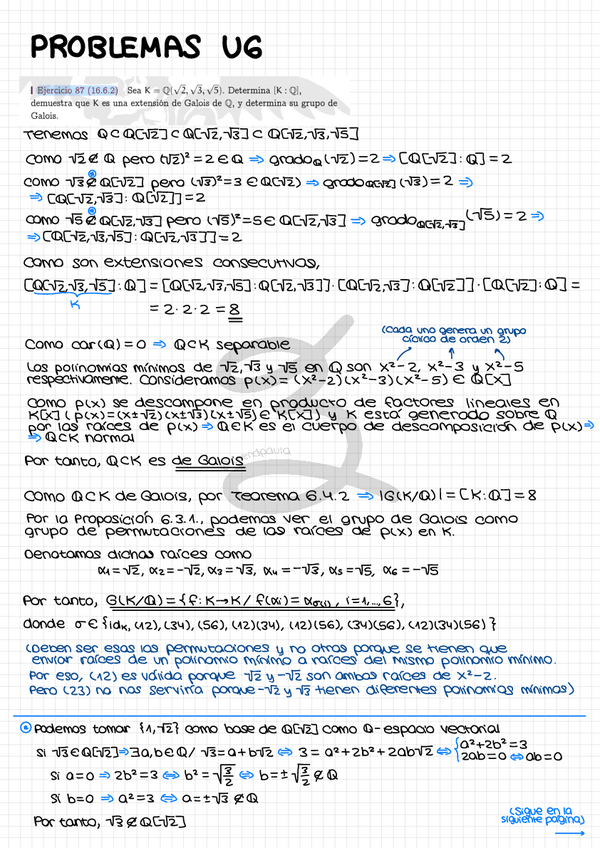 PROBLEMAS U6
Ejercicio 87 (16.6.2) Sea K = Q(√2, √3, √5). Determina [K : Q],
demuestra que K es una extensión de Galois de Q, y determina su grupo de
Galois.
Tenemos Q ⊂ Q[√2] ⊂ Q[√2,√3] ⊂ Q[√2,√3,√5]
Como √2 ∉ Q pero (√2)² = 2 ∈ Q ⇒ grado_Q(√2) = 2 ⇒ [Q[√2] : Q] = 2
Como √3 ∉ Q[√2] pero (√3)² = 3 ∈ Q[√2] ⇒ grado_Q[√2](√3) = 2 ⇒
⇒ [Q[√2,√3] : Q[√2]] = 2
Como √5 ∉ Q[√2,√3] pero (√5)² = 5 ∈ Q[√2,√3] ⇒ grado_Q[√2,√3](√5) = 2 ⇒
⇒ [Q[√2,√3,√5] : Q[√2,√3]] = 2
Como son extensiones consecutivas,
[Q[√2,√3,√5] : Q] = [Q[√2,√3,√5] : Q[√2,√3]] · [Q[√2,√3] : Q[√2]] · [Q[√2] : Q] =
K
= 2 · 2 · 2 = 8
(Cada uno genera un grupo
cíclico de orden 2)
Como car(Q) = 0 ⇒ Q⊂K separable
Los polinomios mínimos de √2, √3 y √5 en Q son x²-2, x²-3 y x²-5
respectivamente. Consideramos p(x) = (x²-2)(x²-3)(x²-5) ∈ Q[x]
Como p(x) se descompone en producto de factores lineales en
K[x] (p(x) = (x±√2)(x±√3)(x±√5) ∈ K[x]) y K está generado sobre Q
por las raíces de p(x) ⇒ Q∈K es el cuerpo de descomposición de p(x) ⇒
⇒ Q⊂K normal
Por tanto, Q⊂K es de Galois
Como Q⊂K de Galois, por Teorema 6.4.2 ⇒ |G(K/Q)| = [K:Q] = 8
Por la Proposición 6.3.1., podemos ver el grupo de Galois como
grupo de permutaciones de las raíces de p(x) en K.
Denotamos dichas raíces como
α₁ = √2, α₂ = -√2, α₃ = √3, α₄ = -√3, α₅ = √5, α₆ = -√5
Por tanto, G(K/Q) = {f: K→K / f(αᵢ) = α_σ(i), i=1,...,6},
donde σ ∈ {id_K, (12), (34), (56), (12)(34), (12)(56), (34)(56), (12)(34)(56)}
(Deben ser esas las permutaciones y no otras porque se tienen que
enviar raíces de un polinomio mínimo a raíces del mismo polinomio mínimo.
Por eso, (12) es válida porque √2 y -√2 son ambas raíces de x²-2.
Pero (23) no nos serviría porque -√2 y √3 tienen diferentes polinomios mínimos)
Podemos tomar {1,√2} como base de Q[√2] como Q-espacio vectorial
Si √3 ∈ Q[√2] ⇒ ∃a,b ∈ Q / √3 = a + b√2 ⇔ 3 = a² + 2b² + 2ab√2 ⇔ { a² + 2b² = 3
2ab = 0 ⇔ ab = 0
Si a = 0 ⇒ 2b² = 3 ⇔ b² = √3/2 ⇔ b = ± √3/2 ∉ Q
Si b = 0 ⇒ a² = 3 ⇔ a = ±√3 ∉ Q
Por tanto, √3 ∉ Q[√2]
(Sigue en la
siguiente página)